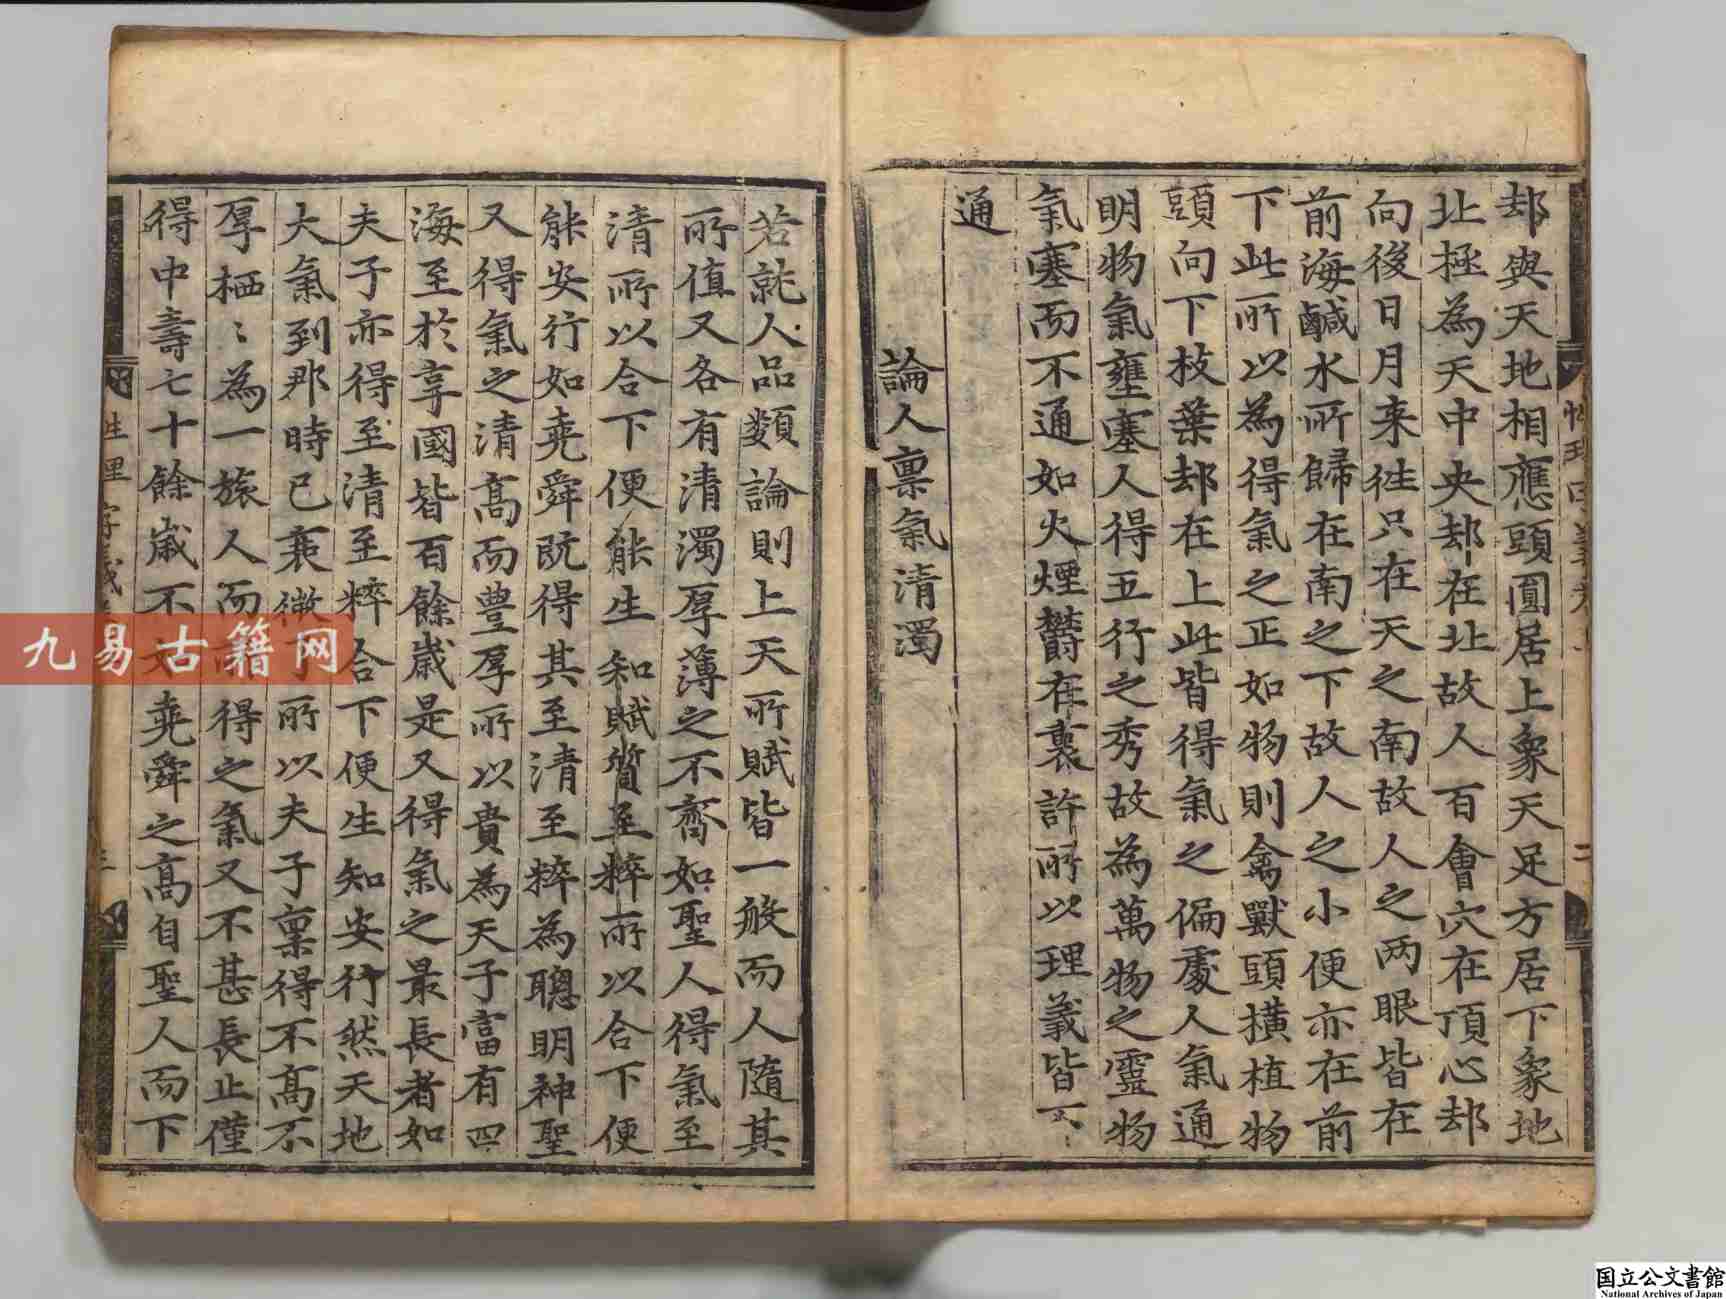 却與天地相應頭圓居上象天足方居下象地
北極為天中央却在北故人百會穴在頂心却
向後日月来往只在天之南故人之两眼皆在
前海鹹水所歸在南之下故人之小便亦在前
下此所以為得氣之正如物則禽獸頭橫植物
頭向下枝葉却在上此皆得氣之偏處人氣通
明物氣壅塞人得五行之秀故為萬物之靈物
氣塞而不通如火煙欝在裏許所以理義皆不
通
論人禀氣清濁
若就人品類論則上天所賦皆一般而人隨其
所值又各有清濁厚薄之不齊如聖人得氣至
清所以合下便能生知賦質至粹所以合下便
能安行如堯舜既得其至清至粹為聰明神聖
又得氣之清高而豊厚所以貴為天子富有四
海至於享國皆百餘歲是又得氣之最長者如
夫子亦得至清至粹合下便生知安行然天地
大氣到那時已衰微了所以夫子禀得不高不
厚栖〻為一旅人而所得之氣又不甚長止僅
得中壽七十餘歲不如堯舜之高自聖人而下
性理字義
三
二
九易古籍网
国立公文書館
National Archives of Japan